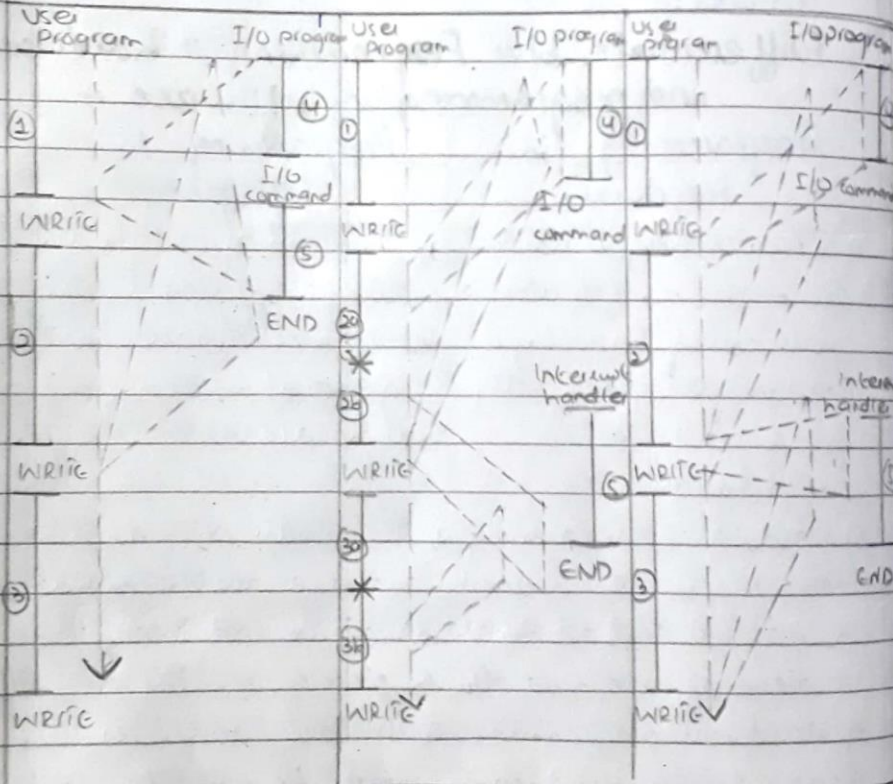 User
Program
I/O program
①
④
I/O
command
WRITE
⑤
END
②
WRITE
③
WRITE
User
Program
I/O program
①
④
I/O
command
WRITE
2a
*
2b
Interrupt
handler
WRITE
⑤
3a
*
END
3b
WRITE
User
program
I/O program
①
I/O command
WRITE
②
handle
WRITE
③
END
WRITE